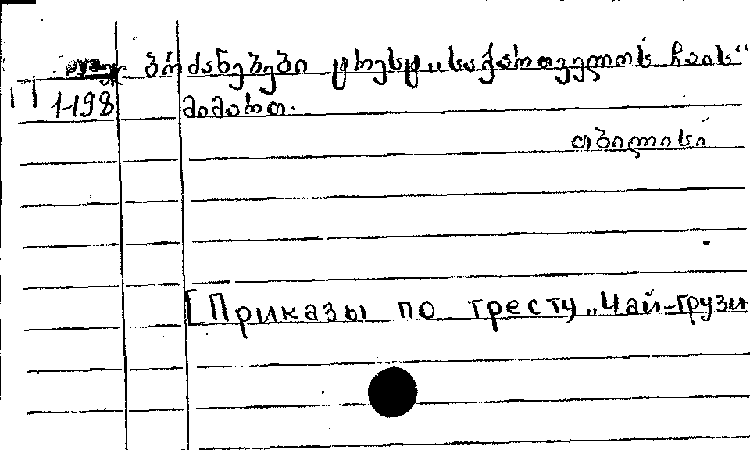 ბრძანებები ტრესტ „საქართველოს ჩაის“
П 1-198 მიმართ.
თბილისი
[Приказы по тресту „Чай-Грузи